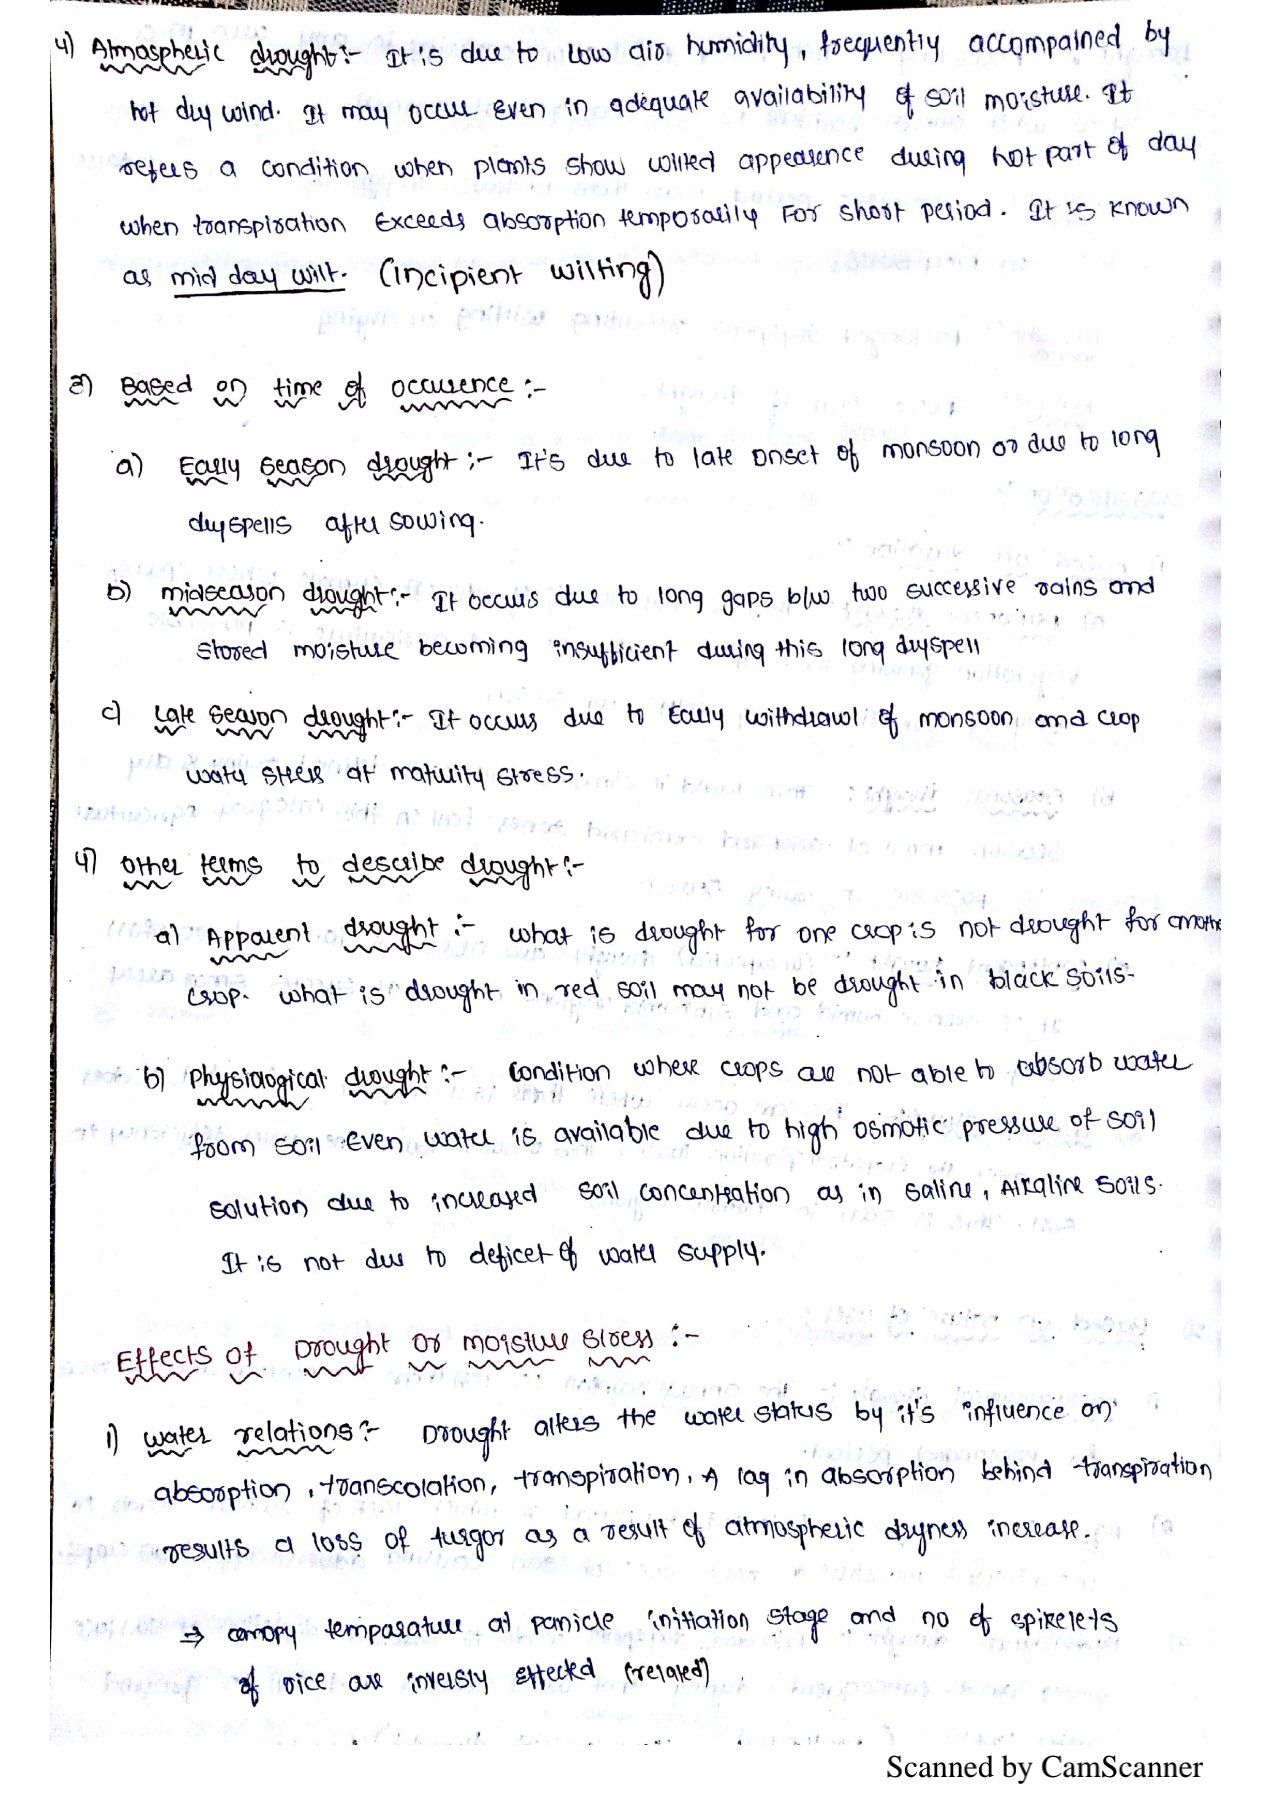 4) Atmospheric drought:- It is due to low air humidity, frequently accompained by
hot dry wind. It may occur even in adequate availability of soil moisture. It
refers a condition when plants show wilted appearence during hot part of day
when transpiration exceeds absorption temporarily for short period. It is known
as mid day wilt. (incipient wilting)
3) Based on time of occurence :-
a) Early season drought :- It's due to late onset of monsoon or due to long
dryspells after sowing.
b) midseason drought:- It occurs due to long gaps b/w two successive rains and
stored moisture becoming insufficient during this long dryspell
c) Late season drought:- It occurs due to Early withdrawl of monsoon and crop
water stress at maturity stress.
4) Other terms to describe drought:-
a) Apparent drought :- what is drought for one crop is not drought for another
crop. what is drought in red soil may not be drought in black soils.
b) Physiological drought :- Condition where crops are not able to absorb water
from soil even water is available due to high osmotic pressure of soil
solution due to increased soil concentration as in saline, Alkaline soils.
It is not due to deficet of water supply.
Effects of Drought or moisture stress :-
i) water relations:- Drought alters the water status by it's influence on
absorption, transcolation, transpiration, A lag in absorption behind transpiration
results a loss of turgor as a result of atmospheric dryness increase.
⇒ canopy temparature at panicle initiation stage and no of spikelets
of rice are inversly effected (related)
Scanned by CamScanner